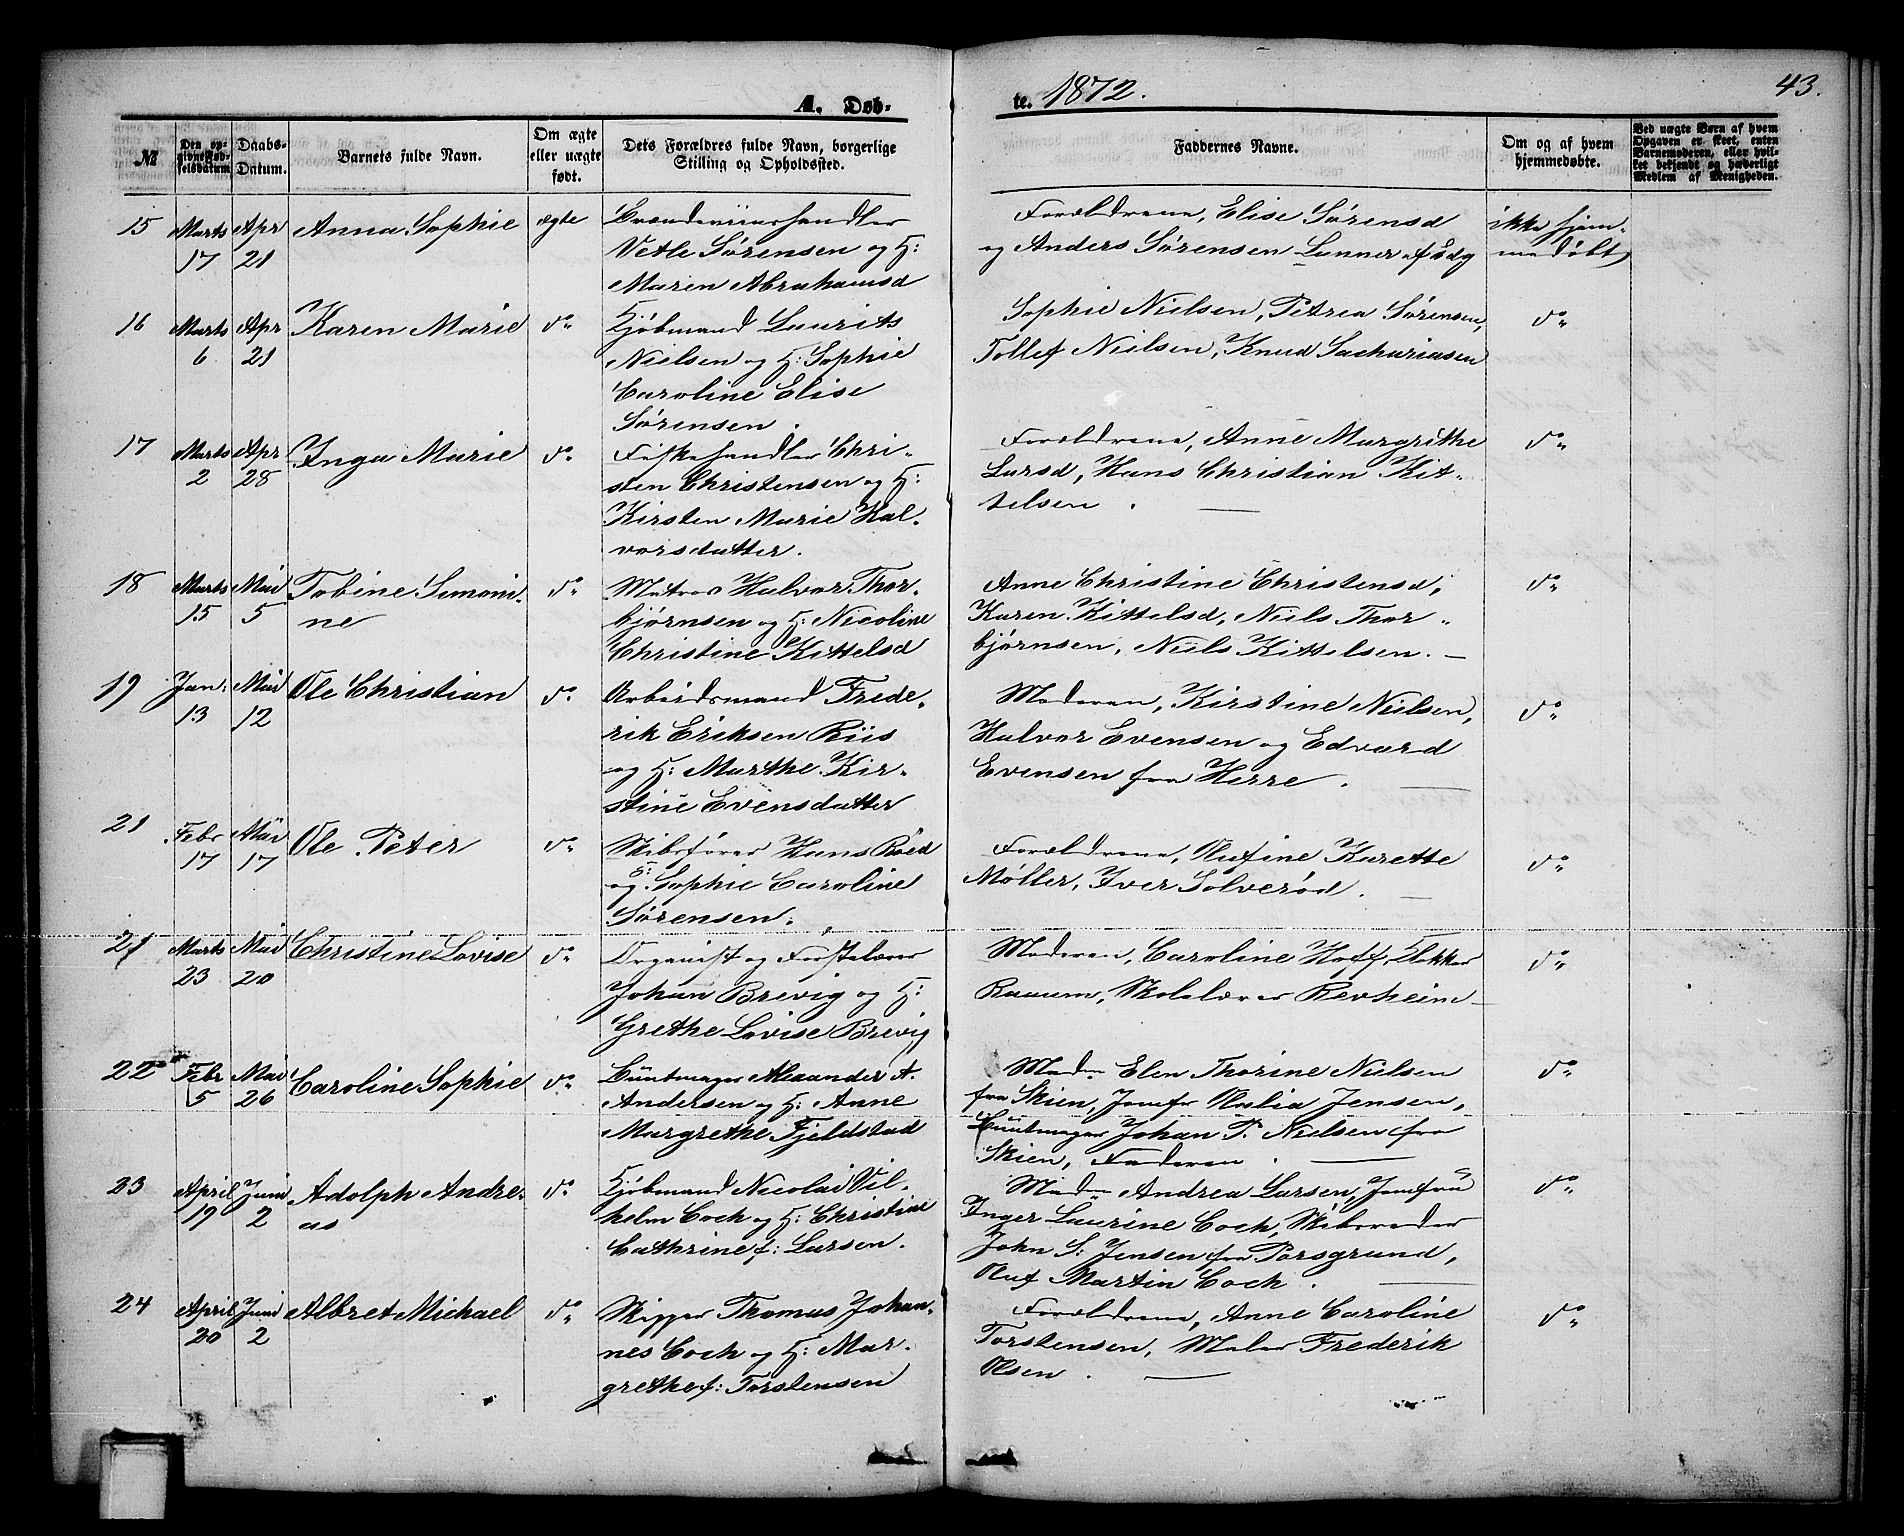 A. Døb-
te. 1872.
43.
№
Den op-
givne Fød-
selsdatum
Daabs-
Datum.
Barnets fulde Navn.
Om ægte
eller uægte
født.
Dets Forældres fulde Navn, borgerlige
Stilling og Opholdssted.
Faddernes Navne.
Om og af hvem
hjemmedøbte.
Ved uægte Børn af hvem
Opgaven er skeet, enten
Barnemoderen, eller hvil-
ket bekjendt og hæderligt
Medlem af Menigheden.
15 Marts Apr Anna Sophie ægte
17 21
Brændeviinshandler
Vetle Sørensen og H:
Maren Abrahamsd
Forældrene, Elise Sørensd
og Anders Sørensen Lunner
ikke hjem-
medøbt
16 Marts Apr Karen Marie do
6 21
Kjøbmand Laurits
Nielsen og H: Sophie
Caroline Elise
Sørensen.
Sophie Nielsen, Petrea Sørensen,
Tollef Nielsen, Knud Sachariasen
do
17 Marts Apr Inga Marie do
2 28
Fiskehandler Chri-
sten Christensen og H:
Kirsten Marie Hal-
vorsdatter.
Forældrene, Anne Margrethe
Larsd, Hans Christian Kit-
telsen.
do
18 Marts Mai Tobine Simoni- do
15 5 ne
Matros Halvor Thor-
bjørnsen og H: Nicoline
Christine Kittelsd
Anne Christine Christensd,
Karen Kittelsd, Niels Thor-
bjørnsen, Niels Kittelsen.
do
19 Jan. Mai Ole Christian do
13 12
Arbeidsmand Frede-
rik Eriksen Riis
og H: Marthe Kir-
stine Evensdatter
Moderen, Kirstine Nielsen,
Halvor Evensen og Edvard
Evensen fra Herre.
do
21 Febr Mai Ole Peter do
17 17
Skibsfører Hans Röed
og H: Sophie Caroline
Sørensen.
Forældrene, Olufine Karette
Møller, Iver Solverød.
do
21 Marts Mai Christine Lovise do
23 20
Organist og Førstelærer
Johan Brevig og H:
Grethe Lovise Brevig
Moderen, Caroline Hoff, Klokker
Raaum, Skolelærer Revheim
do
22 Febr Mai Caroline Sophie do
5 26
Buntmager Alexander A.
Andersen og H: Anne
Margrethe Fjeldstad
Mad. Elen Thorine Nielsen
fra Skien, Jomfr Olalia Jensen,
Buntmager Johan P. Nielsen fra
Skien, Faderen.
do
23 April Juni Adolph Andre- do
19 2 as
Kjøbmand Nicolai Vil-
helm Coch og H: Christine
Cathrine f: Larsen.
Mad. Andrea Larsen, Jomfru
Inger Laurine Coch, Skibsreder
John S. Jensen fra Porsgrund,
Oluf Martin Coch.
do
24 April Juni Albret Michael do
20 2
Skipper Thomas Johan-
nes Coch og H: Mar-
grethe f: Torstensen
Forældrene, Anne Caroline
Torstensen, Maler Frederik
Olsen.
do